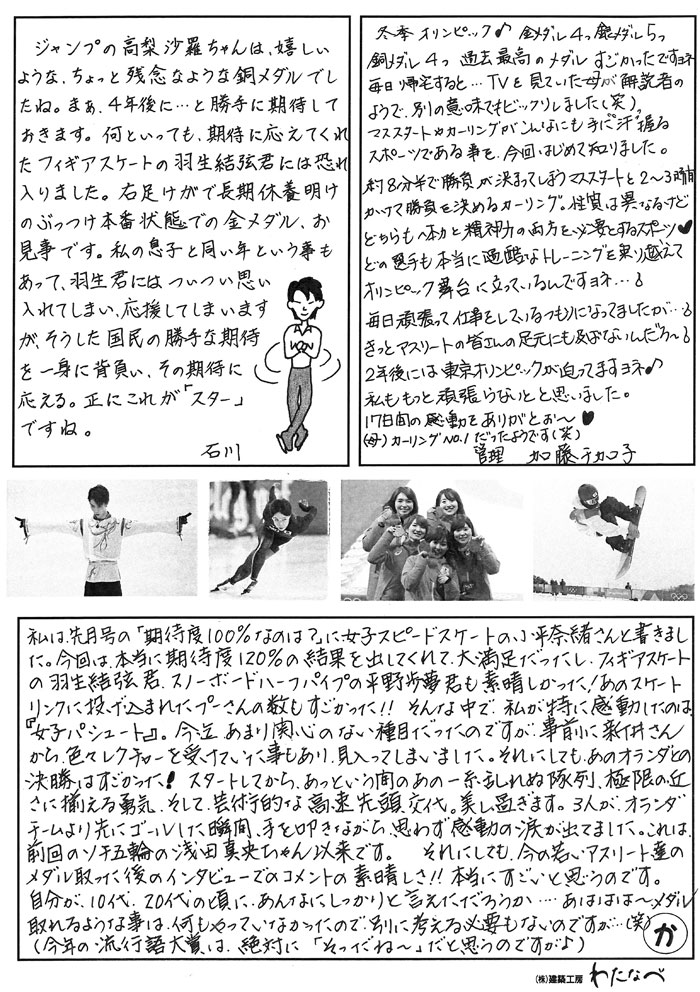 ジャンプの高梨沙羅ちゃんは、嬉しい
ような、ちょっと残念なような銅メダルでし
たね。まぁ、4年後に…と勝手に期待して
おきます。何といっても、期待に応えてくれ
たフィギアスケートの羽生結弦君には恐れ
入りました。右足けがで長期休養明け
のぶっつけ本番状態での金メダル、お
見事です。私の息子と同い年という事も
あって、羽生君にはついつい思い
入れてしまい、応援してしまいます
が、そうした国民の勝手な期待
を一身に背負い、その期待に
応える。正にこれが「スター」
ですね。
石川
冬季オリンピック♪ 金メダル4つ銀メダル5つ
銅メダル4つ 過去最高のメダル すごかったですヨネ
毎日帰宅すると…TVを見ていた母が解説者の
ようで、別の意味でもビックリしました(笑)
マススタートやカーリングがこんなにも手に汗握る
スポーツである事を、今回はじめて知りました。
約8分半で勝負が決まってしまうマススタートと2〜3時間
かけて勝負を決めるカーリング。性質は異なるけど
どちらも体力と精神力の両方を必要とするスポーツ♥
どの選手も本当に過酷なトレーニングを乗り越えて
オリンピック舞台に立っているんですヨネ…
毎日頑張って仕事をしているつもりになってましたが…
きっとアスリートの皆さんの足元にも及ばないんだろ〜
2年後には東京オリンピックが迫ってますヨネ♪
私ももっと頑張らないとと思いました。
17日間の感動をありがとお〜♥
(母)カーリングNO.1だったようです(笑)
管理 加藤チカ子
私は、先月号の「期待度100%なのは?」に女子スピードスケートの小平奈緒さんと書きまし
た。今回は、本当に期待度120%の結果を出してくれて、大満足だったし、フィギアスケート
の羽生結弦君、スノーボードハーフパイプの平野歩夢君も素晴しかった!あのスケート
リンクに投げ込まれたプーさんの数もすごかった!! そんな中で、私が特に感動したのは
『女子パシュート』。今迄あまり関心のない種目だったのですが、事前に新井さん
から、色々レクチャーを受けていた事もあり、見入ってしまいました。それにしても、あのオランダとの
決勝はすごかった! スタートしてから、あっという間のあの一糸乱れぬ隊列、極限の近
さに揃える勇気、そして芸術的な高速先頭交代。美し過ぎます。3人が、オランダ
チームより先にゴールした瞬間、手を叩きながら、思わず感動の涙が出てました。これは、
前回のソチ五輪の浅田真央ちゃん以来です。 それにしても、今の若いアスリート達の
メダル取った後のインタビューでのコメントの素晴しさ!! 本当にすごいと思うのです。
自分が、10代、20代の頃に、あんなにしっかりと言えてただろうか…あははは〜メダル
取れるような事は、何もやっていなかったので、別に考える必要もないのですが…(笑)
(今年の流行語大賞は、絶対に「そっだね〜」だと思うのですが♪)
か
(株)建築工房 わたなべ